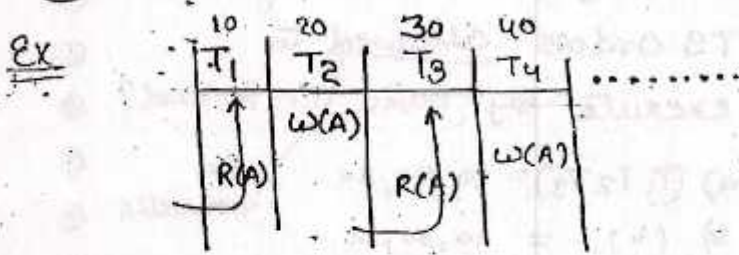 Ex
10 20 30 40
T1 T2 T3 T4 ........
W(A)
R(A) R(A) W(A)